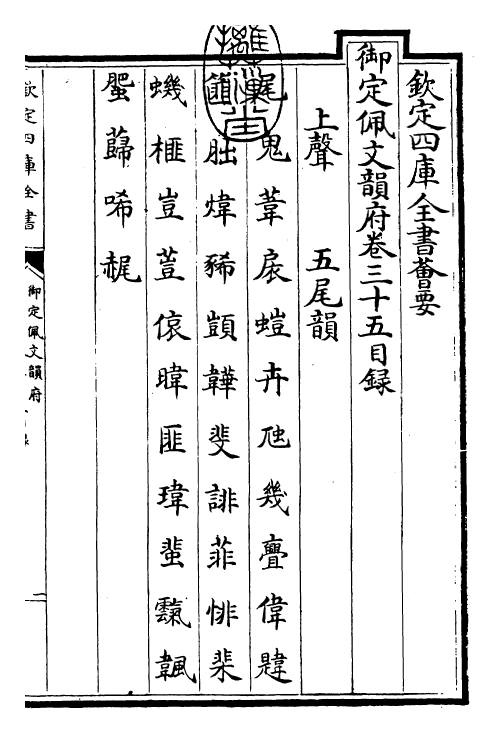 欽定四庫全書薈要
御定佩文韻府卷三十五目録
上聲　五尾韻
尾鬼葦扆螘卉虺幾亹偉韙
朏煒豨顗韡斐誹菲悱棐
蟣榧豈荁儗暐匪瑋蜚霼颹
蜰蘬唏梶
欽定四庫全書
御定佩文韻府